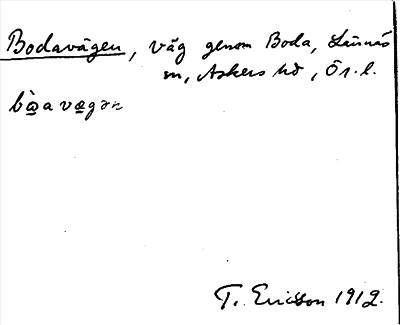 Bodavägen, väg genom Boda, Lännäs
sn, Askers hd, Ör. l.
bò̲a væ̲gən
T. Ericsson 1912.